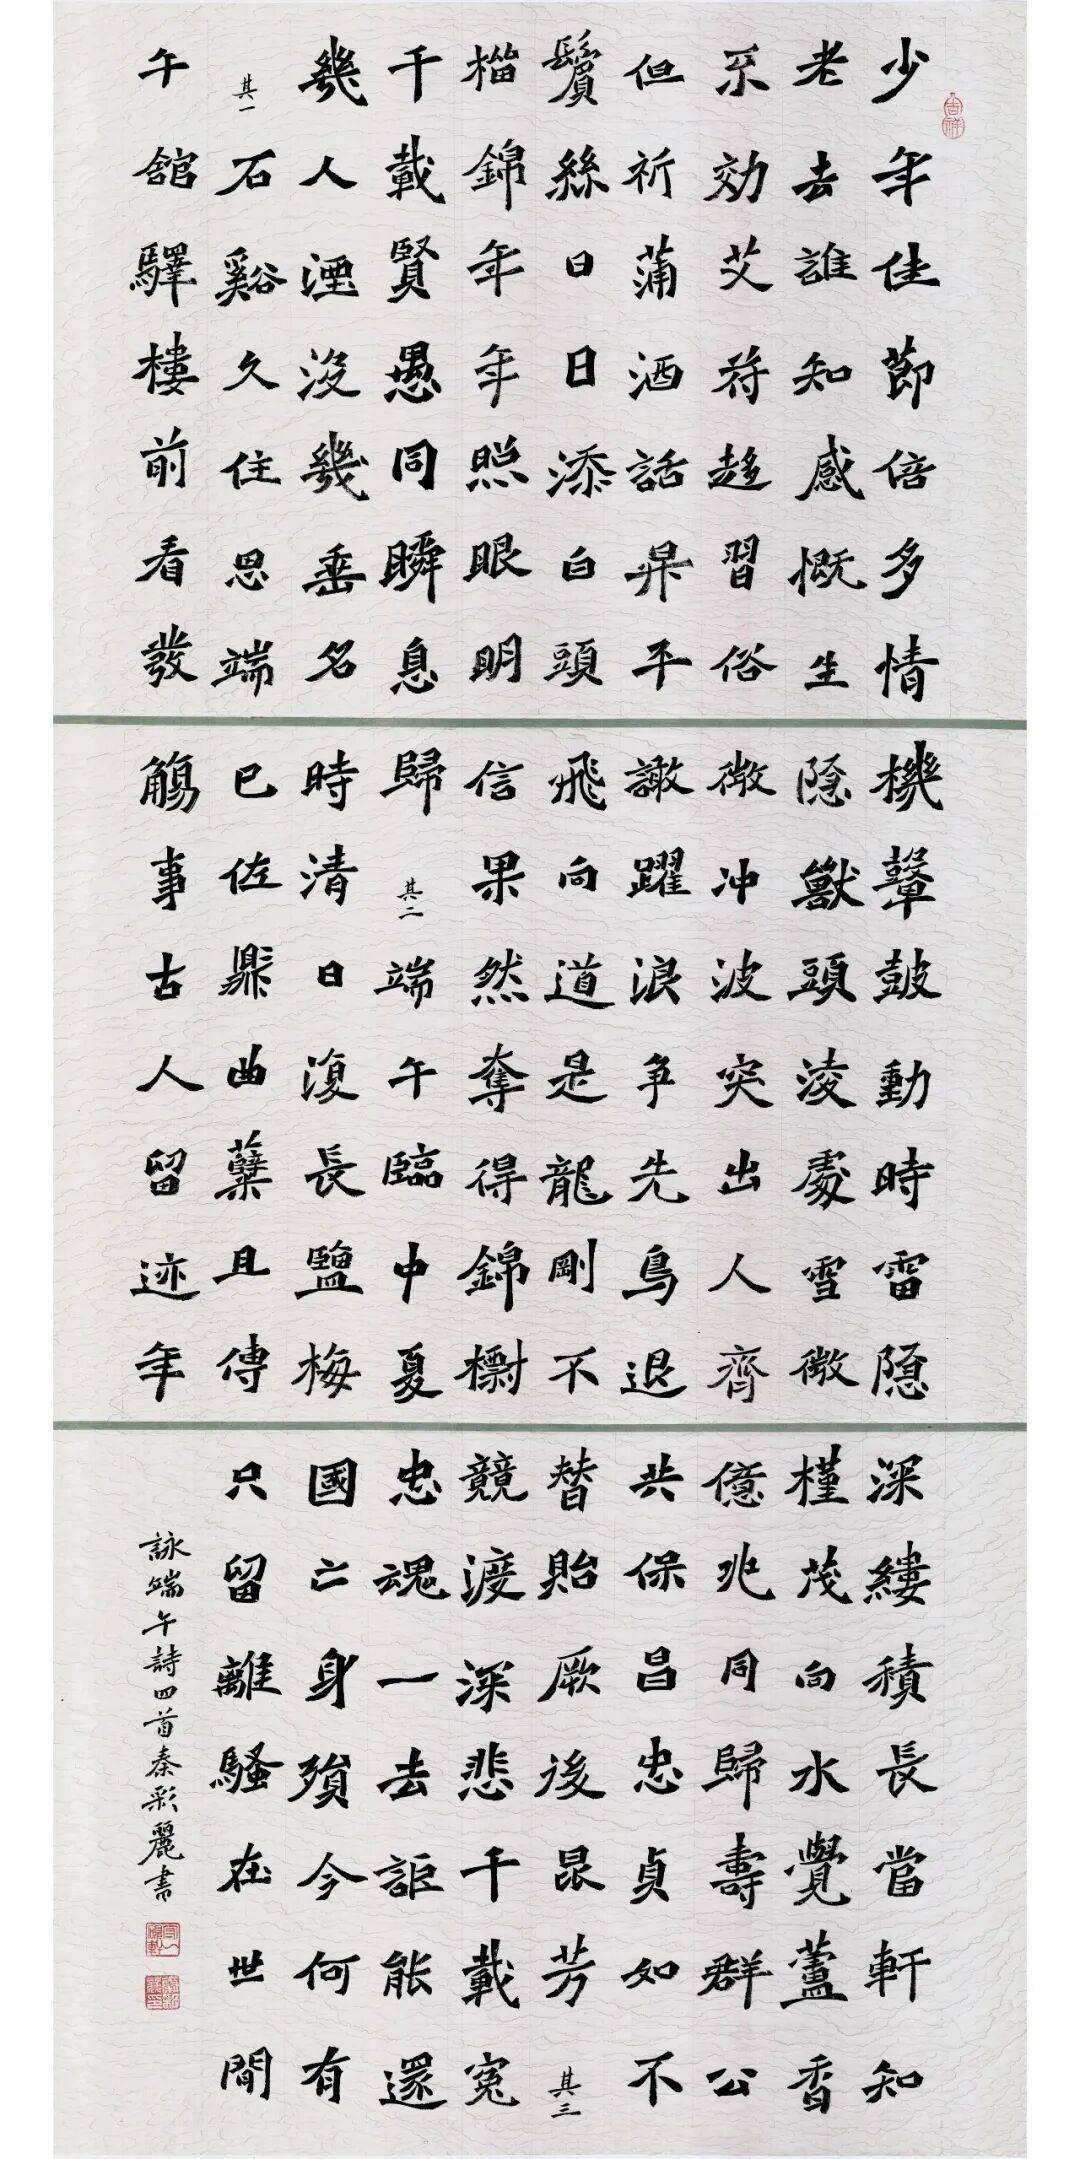 吉祥
少年佳節倍多情
老去誰知感慨生
不効艾符趍習俗
但祈蒲酒話昇平
鬢絲日日添白頭
榴錦年年照眼明
千載賢愚同瞬息
幾人湮没幾垂名
其一石谿久住思端
午舘驛樓前看發
機鼙鼓動時雷隱
隱獸頭凌處雪微
微冲波突出人齊
譀躍浪争先鳥退
飛向道是龍剛不
信果然奪得錦標
歸其二端午臨中夏
時清日復長鹽梅
已佐鼎曲糵且傳
觴事古人留迹年
深縷積長當軒知
槿茂向水覺蘆香
億兆同歸壽群公
共保昌忠貞如不
替貽厥後昆芳其三
競渡深悲千載冤
忠魂一去詎能還
國亡身殞今何有
只留離騷在世間
詠端午詩四首秦彩麗書